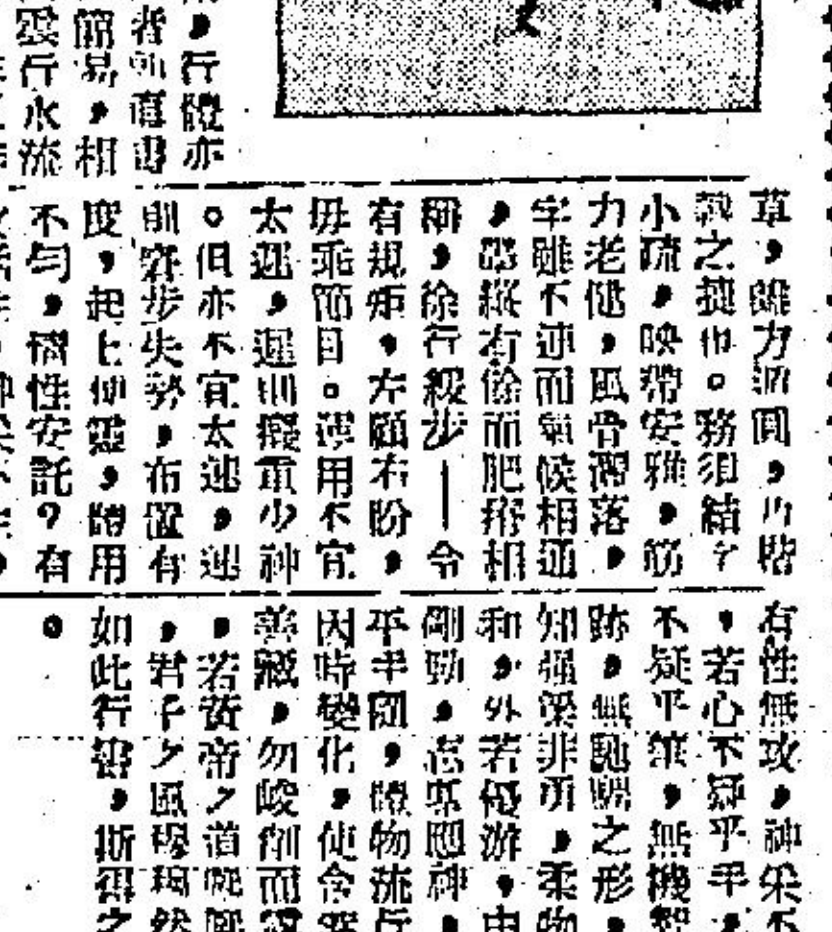 ，行體亦
者
簡易，相
雲行水流
草，
之捷也。務須結字
小疏，映帶安雅，筋
力老健，風骨灑落，
字雖不連而氣候相通
，縱有餘而肥瘠相
稱，徐行緩步——令
有規矩，左顧右盼，
毋乖節目。運用不宜
太遲，遲則癡重少神
。但亦不宜太速，速
則窘步失勢，布置有
度，起止便靈，體用
不勻，性安託？有
有性無攻，神采不
，若心不疑乎手，
不疑乎筆，無機智
跡，無馳騁之形，
知强梁非勇，柔
和，外若優游，中
剛勁，志專應神，
平手隨，體物流行
因時變化，使含
善藏，勿峻削而露
，若黃帝之道熙熙
，君子之風穆穆然
如此行書，斯得之
。